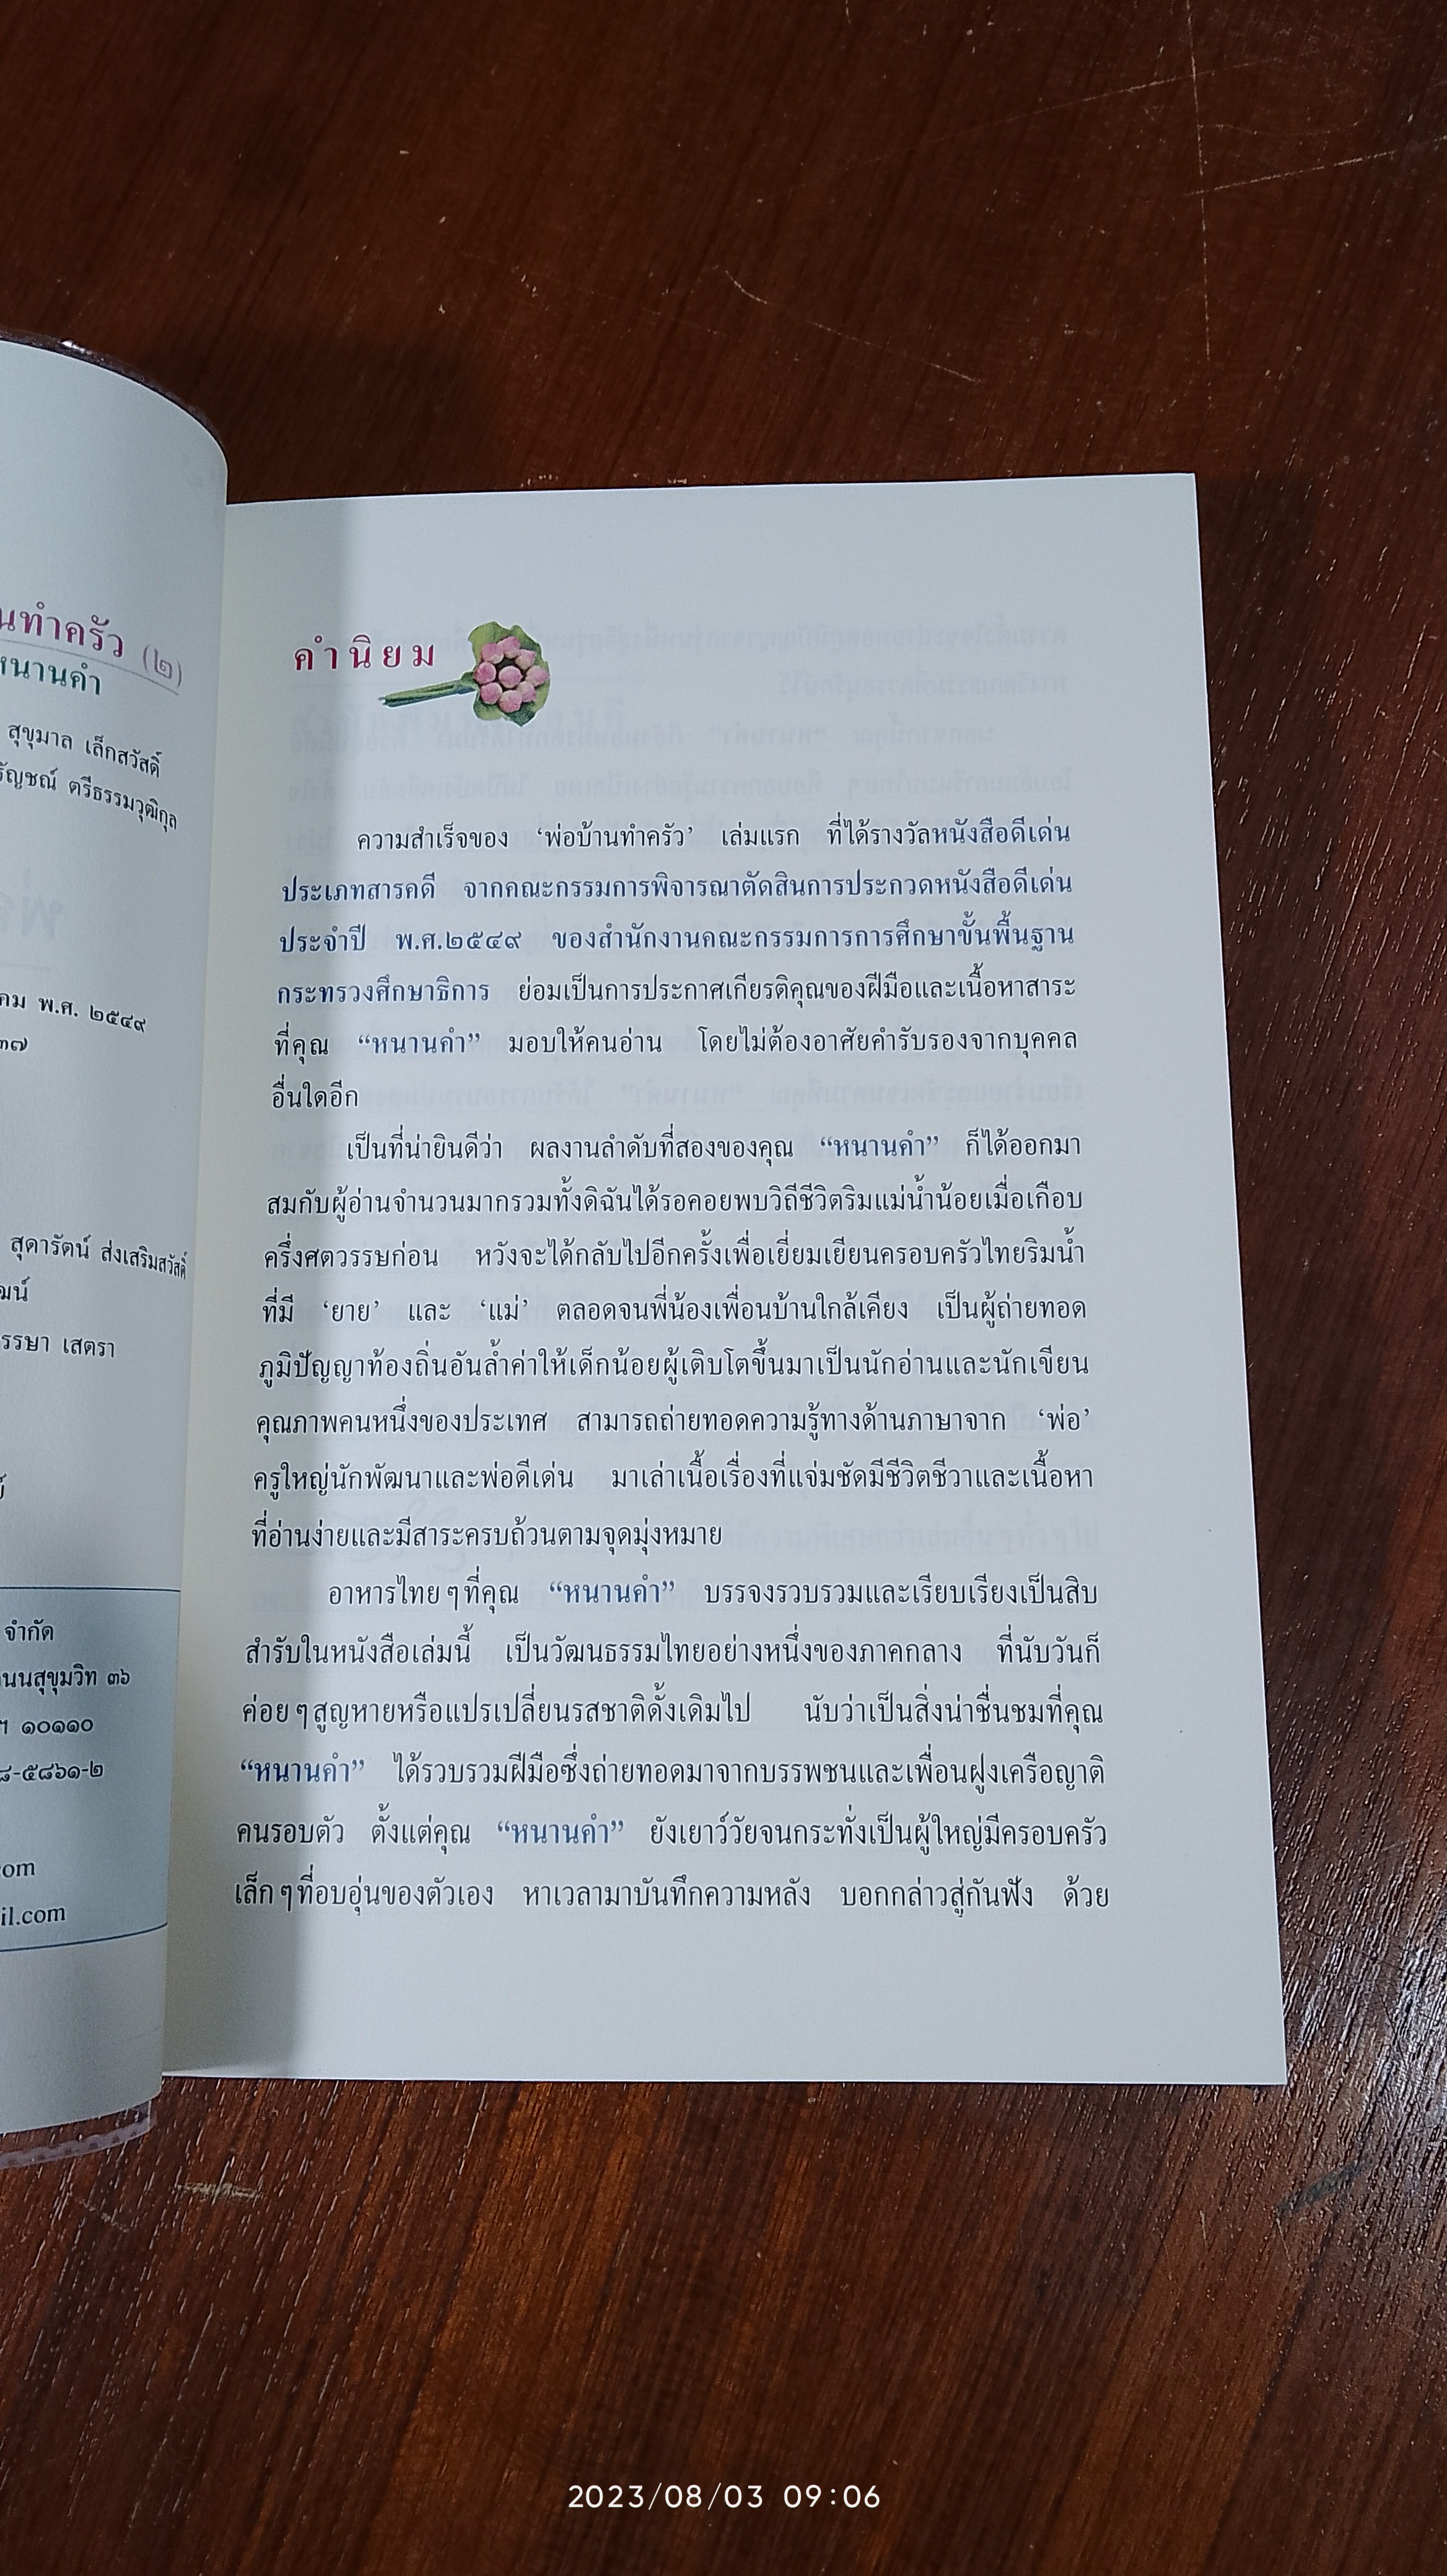 นทำครัว (๒)
หนานคำ
สุขุมาล เล็กสวัสดิ์
ัญชณ์ ตรีธรรมวุฒิกุล
คม พ.ศ. ๒๕๔๙
๓๗
สุดารัตน์ ส่งเสริมสวัสดิ์
ฒน์
รรษา เสตรา
จำกัด
นนสุขุมวิท ๓๖
ฯ ๑๐๑๑๐
๘-๕๘๖๑-๒
om
il.com
คำนิยม
ความสำเร็จของ ‘พ่อบ้านทำครัว’ เล่มแรก ที่ได้รางวัลหนังสือดีเด่น
ประเภทสารคดี จากคณะกรรมการพิจารณาตัดสินการประกวดหนังสือดีเด่น
ประจำปี พ.ศ.๒๕๔๙ ของสำนักงานคณะกรรมการการศึกษาขั้นพื้นฐาน
กระทรวงศึกษาธิการ ย่อมเป็นการประกาศเกียรติคุณของฝีมือและเนื้อหาสาระ
ที่คุณ “หนานคำ” มอบให้คนอ่าน โดยไม่ต้องอาศัยคำรับรองจากบุคคล
อื่นใดอีก
เป็นที่น่ายินดีว่า ผลงานลำดับที่สองของคุณ “หนานคำ” ก็ได้ออกมา
สมกับผู้อ่านจำนวนมากรวมทั้งดิฉันได้รอคอยพบวิถีชีวิตริมแม่น้ำน้อยเมื่อเกือบ
ครึ่งศตวรรษก่อน หวังจะได้กลับไปอีกครั้งเพื่อเยี่ยมเยียนครอบครัวไทยริมน้ำ
ที่มี ‘ยาย’ และ ‘แม่’ ตลอดจนพี่น้องเพื่อนบ้านใกล้เคียง เป็นผู้ถ่ายทอด
ภูมิปัญญาท้องถิ่นอันล้ำค่าให้เด็กน้อยผู้เติบโตขึ้นมาเป็นนักอ่านและนักเขียน
คุณภาพคนหนึ่งของประเทศ สามารถถ่ายทอดความรู้ทางด้านภาษาจาก ‘พ่อ’
ครูใหญ่นักพัฒนาและพ่อดีเด่น มาเล่าเนื้อเรื่องที่แจ่มชัดมีชีวิตชีวาและเนื้อหา
ที่อ่านง่ายและมีสาระครบถ้วนตามจุดมุ่งหมาย
อาหารไทยๆที่คุณ “หนานคำ” บรรจงรวบรวมและเรียบเรียงเป็นสิบ
สำรับในหนังสือเล่มนี้ เป็นวัฒนธรรมไทยอย่างหนึ่งของภาคกลาง ที่นับวันก็
ค่อยๆสูญหายหรือแปรเปลี่ยนรสชาติดั้งเดิมไป นับว่าเป็นสิ่งน่าชื่นชมที่คุณ
“หนานคำ” ได้รวบรวมฝีมือซึ่งถ่ายทอดมาจากบรรพชนและเพื่อนฝูงเครือญาติ
คนรอบตัว ตั้งแต่คุณ “หนานคำ” ยังเยาว์วัยจนกระทั่งเป็นผู้ใหญ่มีครอบครัว
เล็กๆที่อบอุ่นของตัวเอง หาเวลามาบันทึกความหลัง บอกกล่าวสู่กันฟัง ด้วย
2023/08/03 09:06